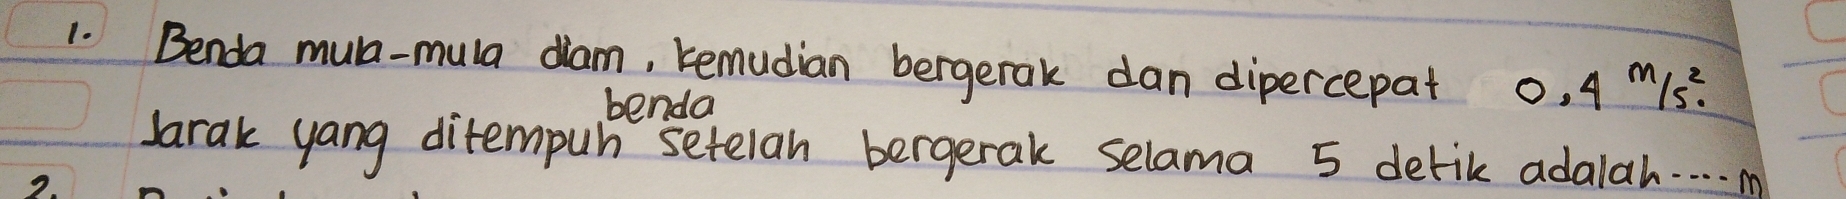 1. Benda mula-mula diam, kemudian bergerak dan dipercepat 0,4 m/s².
benda
Jarak yang ditempuh setelah bergerak selama 5 detik adalah.....m
2.